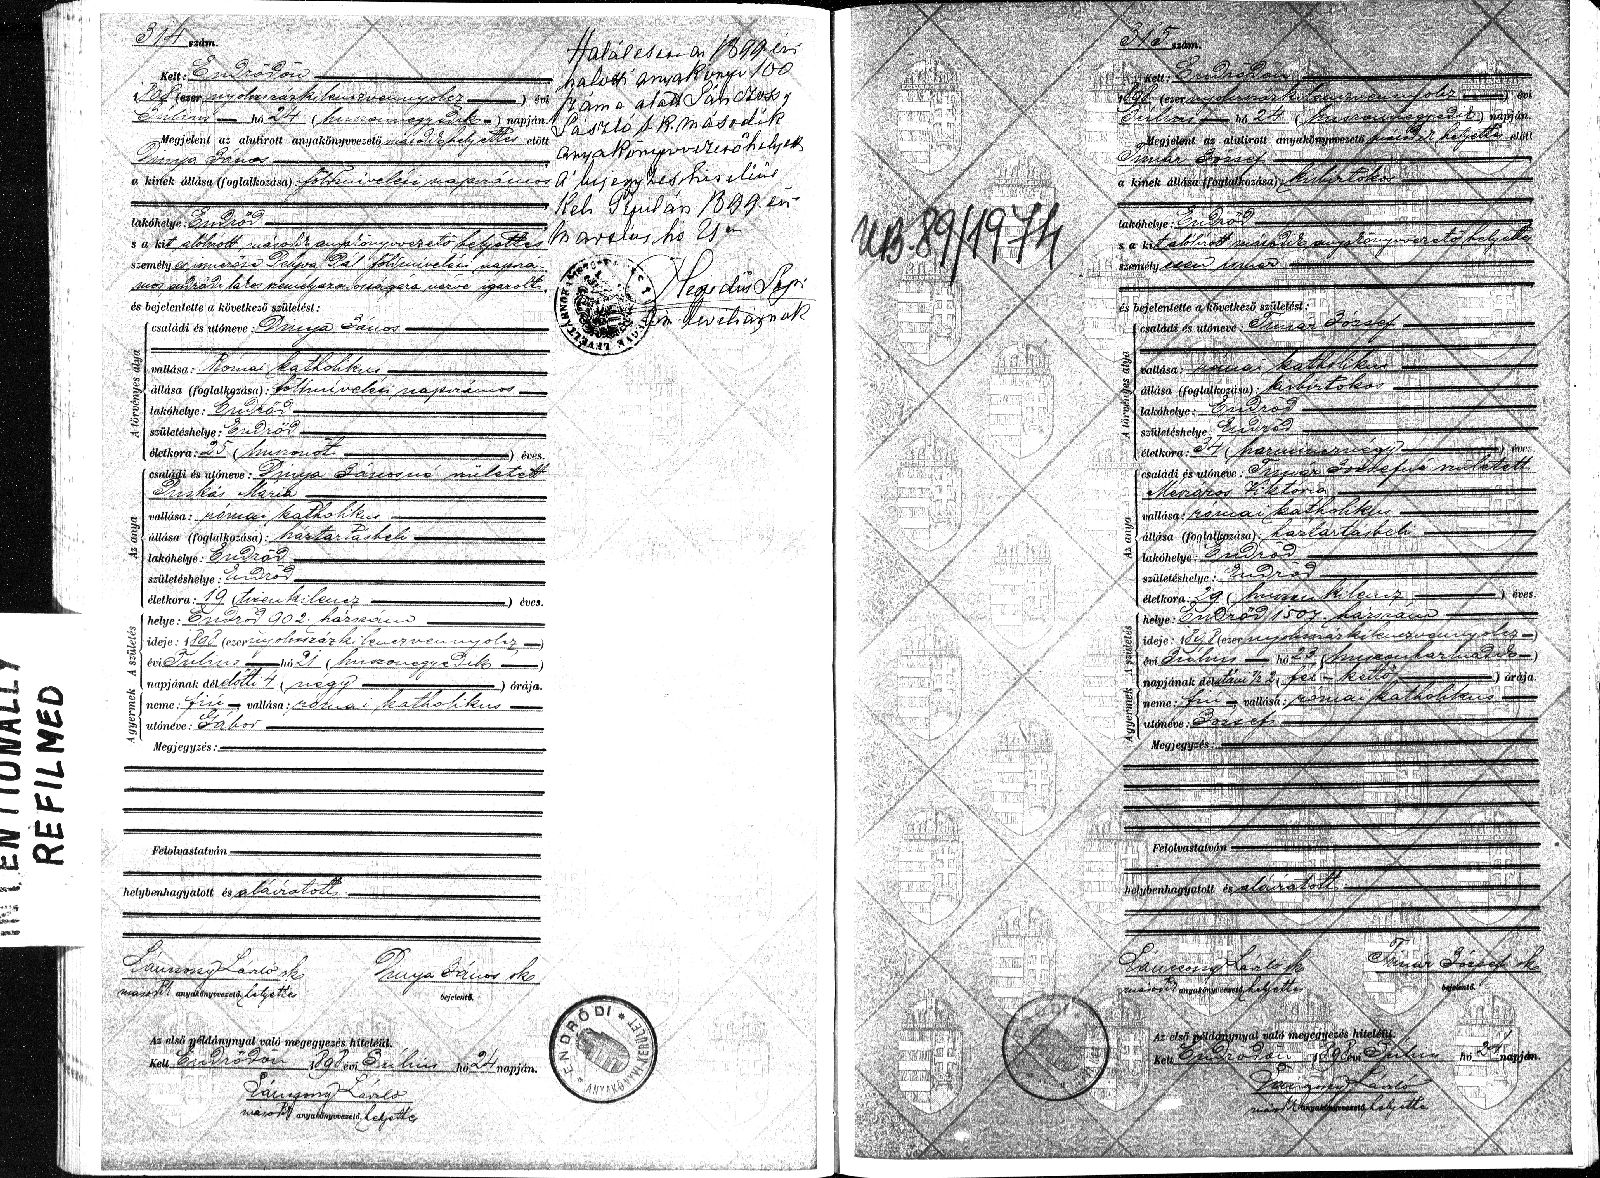 314 szám.
Kelt: Endrődön
1898 (ezer nyolczszázkilenczvennyolcz) évi
Július hó 24 (huszonnegyedik) napján.
Megjelent az alulirott anyakönyvezető másodk helyettes előtt
János
a kinek állása (foglalkozása) földmivelési napszámos
lakóhelye: Endrőd
s a kit alólirott másodk anyakönyvvezető helyettes
személyes
és bejelentette a következő születést:
A törvényes atya
családi és utóneve: János
vallása: Római katholikus
állása (foglalkozása): földmivelési napszámos
lakóhelye: Endrőd
születéshelye: Endrőd
életkora: 25 (huszonöt) éves.
Az anya
családi és utóneve: Jánosné született
Mária
vallása: római katholikus
állása (foglalkozása): háztartásbeli
lakóhelye: Endrőd
születéshelye: Endrőd
életkora: 19 (tizenkilencz) éves.
A születés
helye: Endrőd 902. házszám
ideje: 1898 (ezer nyolczszázkilenczvennyolcz)
évi Július hó 21 (huszonegyedik)
napjának délelőtti 4 (négy) órája.
A gyermek
neme: fiu vallása: római katholikus
utóneve: Gábor
Megjegyzés:
Felolvastatván
helybenhagyatott és aláiratott.
László sk János sk
másodk anyakönyvvezető helyettes bejelentő.
Az első példánynyal való megegyezés hiteléül.
Kelt Endrődön 1898 évi Július hó 24 napján.
László
másodk anyakönyvvezető helyettes
Haláleset az 1899 évi
halotti anyakönyv 100
száma alatt
László sk. második
anyakönyvvezetőhelyettes
Kelt Gyulán 1899 évi
Március hó
Hegedűs
ENDRŐDI
ANYAKÖNYVI KERÜLET
INTENTIONALLY
REFILMED
315 szám.
Kelt: Endrődön
1898 (ezer nyolczszázkilenczvennyolcz) évi
Július hó 24 (huszonnegyedik) napján.
Megjelent az alulirott anyakönyvvezető másodk helyettes előtt
Timár József
a kinek állása (foglalkozása) kisbirtokos
lakóhelye: Endrőd
s a kit alólirott másodk anyakönyvvezető helyettes
személyesen ismer
és bejelentette a következő születést:
A törvényes atya
családi és utóneve: Timár József
vallása: római katholikus
állása (foglalkozása): kisbirtokos
lakóhelye: Endrőd
születéshelye: Endrőd
életkora: 34 (harmincznégy) éves.
Az anya
családi és utóneve: Timár Józsefné született
Mészáros Viktória
vallása: római katholikus
állása (foglalkozása): háztartásbeli
lakóhelye: Endrőd
születéshelye: Endrőd
életkora: 29 (huszonkilencz) éves.
A születés
helye: Endrőd 1507. házszám
ideje: 1898 (ezer nyolczszázkilenczvennyolcz)
évi Július hó 23 (huszonharmadik)
napjának délutáni ½2 (fél kettő) órája.
A gyermek
neme: fiu vallása: római katholikus
utóneve: József
Megjegyzés:
Felolvastatván
helybenhagyatott és aláiratott
László sk Timár József sk
másodk anyakönyvvezető helyettes bejelentő.
Az első példánynyal való megegyezés hiteléül.
Kelt Endrődön 1898 évi Július hó 24 napján.
László
másodk anyakönyvvezető helyettes
UB. 89/1974